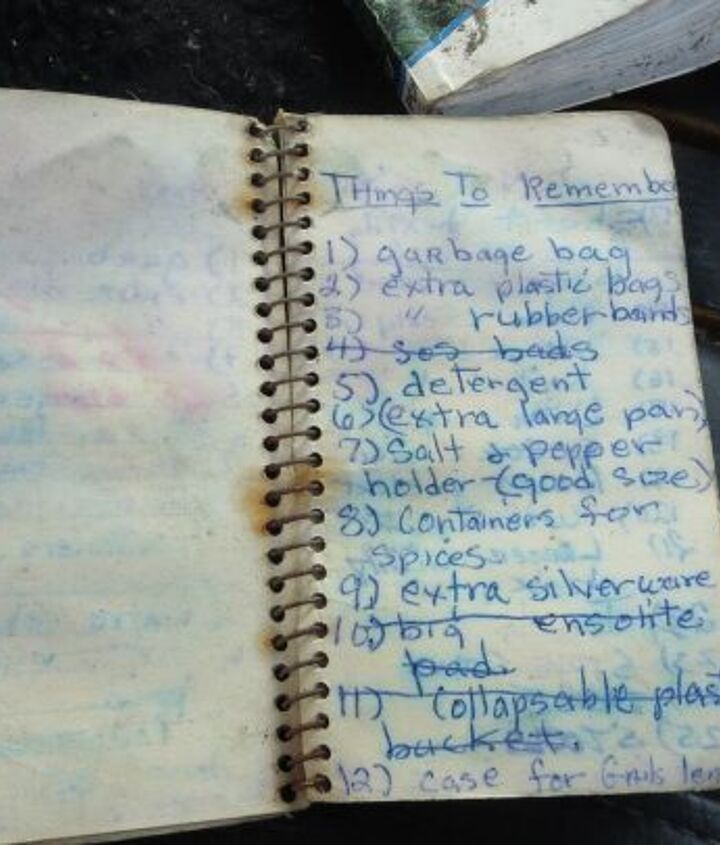 THings To Remembe
1) garbage bag
2) extra plastic bags
3) " rubberbands
4) sos bads
5) detergent
6) (extra large pan)
7) Salt & pepper
holder-(good size)
8) Containers for
spices
9) extra silverware
10) big ensolite
pad
11) Collapsable plas
bucket.
12) case for